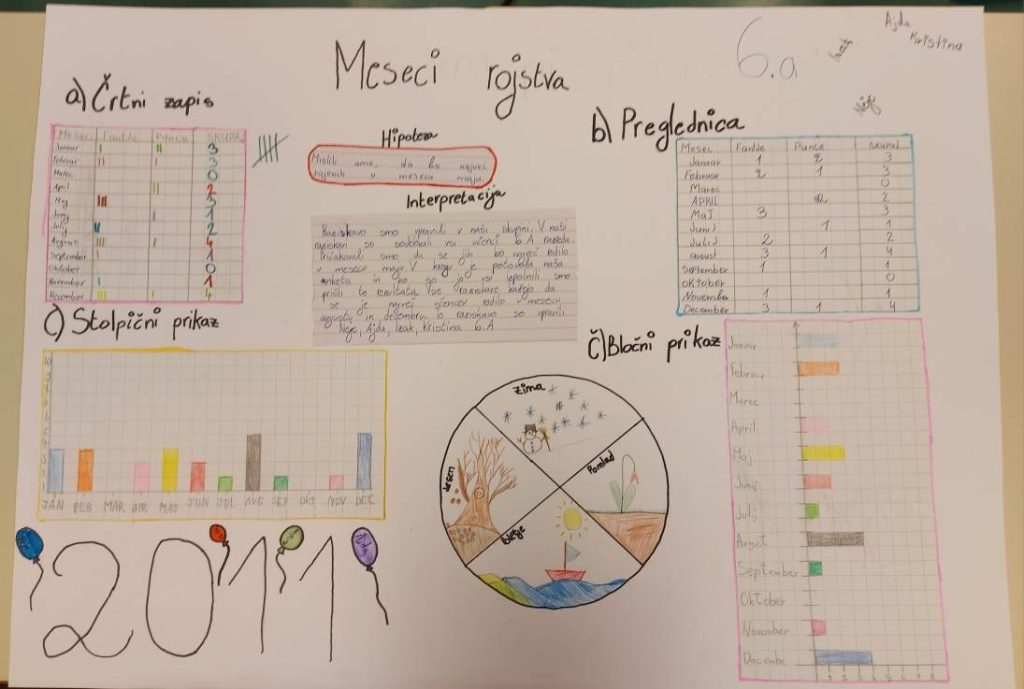 Meseci rojstva
6.a
Ajda
Kristina
a) Črtni zapis
Mesec Fantile Punca SKUPAJ
Januar II 3
Februar II I 3
Marec 0
April II 2
Maj III 3
Junij I 1
Julij II 2
Avgust III I 4
September I 1
Oktober 0
November I 1
December III I 4
Hipoteza
Mislili smo, da bo največ
rojenih v mesecu maju
Interpretacija
Raziskavo smo opravili v naši skupini. V naši
raziskavi so sodelovali vsi učenci 6.A razreda.
Pričakovali smo da se jih bo največ rodilo
v mesecu maju. V krogu je potovala naša
anketa in ko so jo vsi izpolnili smo
prišli to rezultata. Vse raziskave kažejo da
se je največ učencev rodilo v mesecu
avgustu in decembru. To raziskavo so opravili
Neja, Ajda, Izak, Kristina 6.A
b) Preglednica
Mesec Fantje Punce skupaj
Januar 1 2 3
Februar 2 1 3
Marec 0
APRIL 2 2
Maj 3 3
Junij 1 1
Julij 2 2
avgust 3 1 4
September 1 1
oktober 0
November 1 1
December 3 1 4
C) Stolpični prikaz
JAN FEB MAR APR MAJ JUN JUL AVG SEP OKT NOV DEC
Č) Bločni prikaz
Januar
Februar
Marec
April
Maj
Junij
Julij
Avgust
September
Oktober
November
Decembe
1 2 3 4 5 6 7 8
zima
Pomlad
Jesen
2011